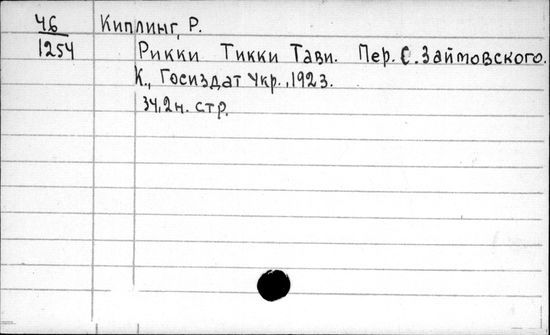 46 Киплинг, Р.
1254 Рикки Тикки Тави. Пер. С. Займовского.
К., Госиздат Укр., 1923.
34, 2н. стр.